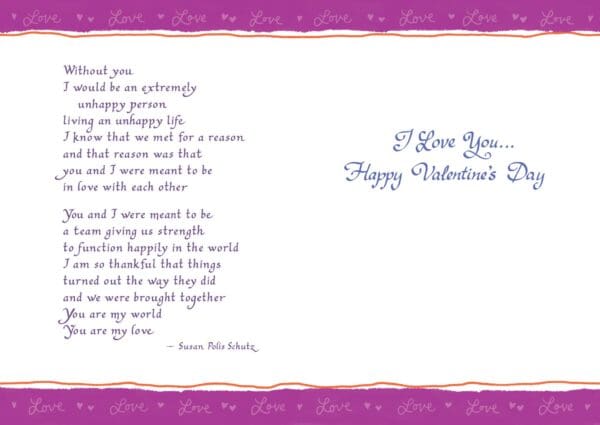 Love Love Love Love Love Love Love
Without you
I would be an extremely
unhappy person
living an unhappy life
I know that we met for a reason
and that reason was that
you and I were meant to be
in love with each other
You and I were meant to be
a team giving us strength
to function happily in the world
I am so thankful that things
turned out the way they did
and we were brought together
You are my world
You are my love
— Susan Polis Schutz
I Love You...
Happy Valentine's Day
Love Love Love Love Love Love Love